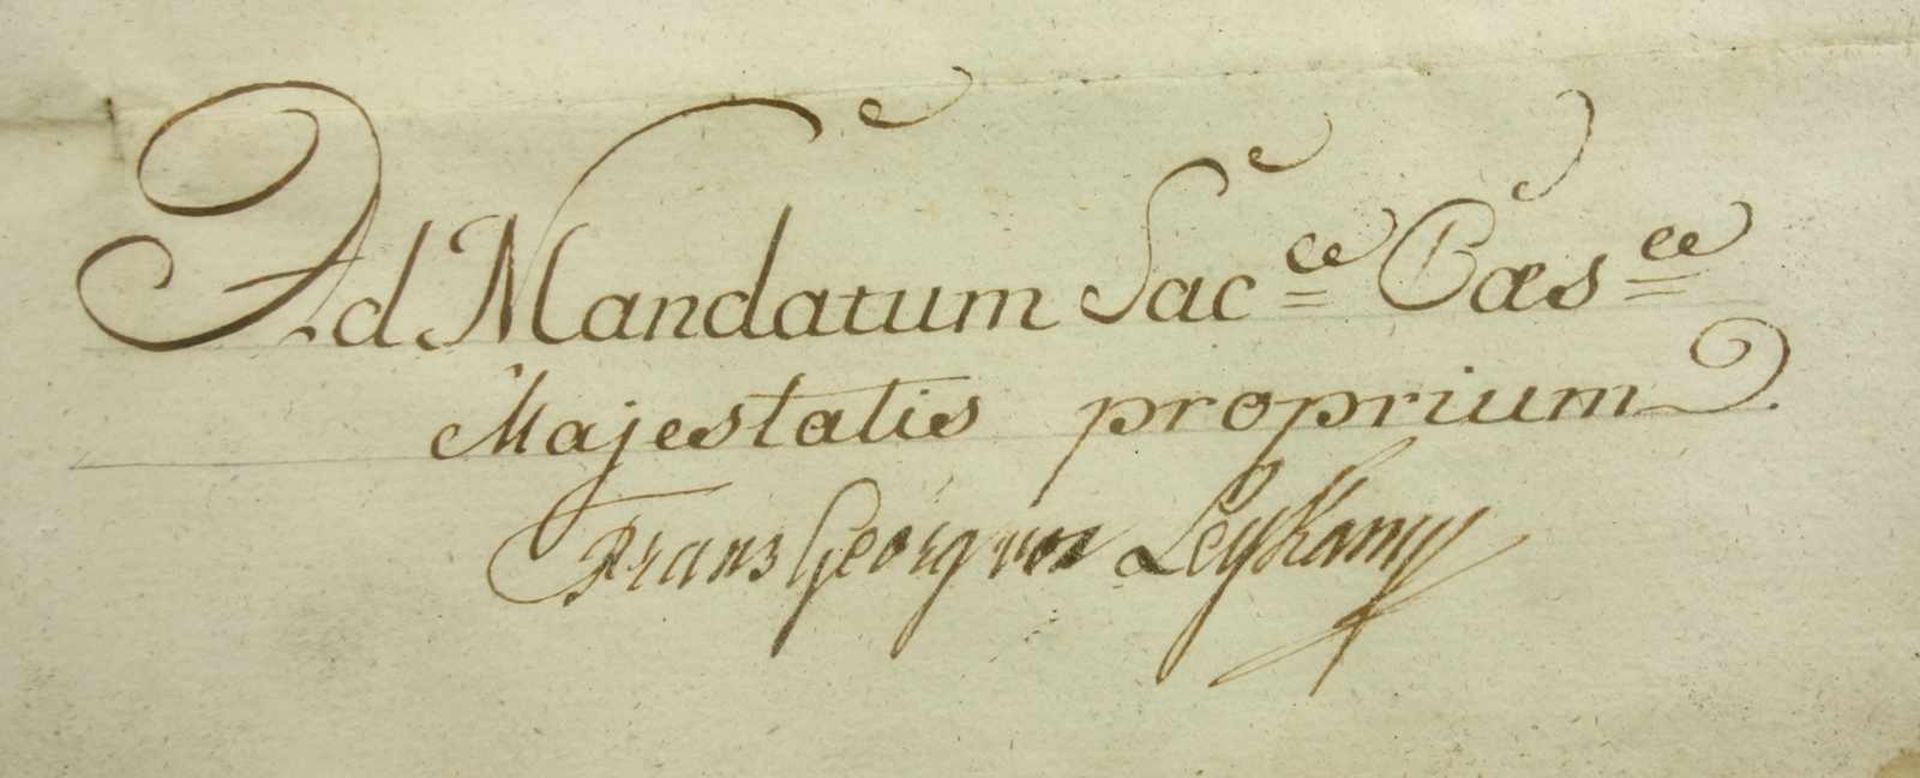 Ad Mandatum Sac.ae Caes.ae
Majestatis proprium
Franz Georg von Leykam